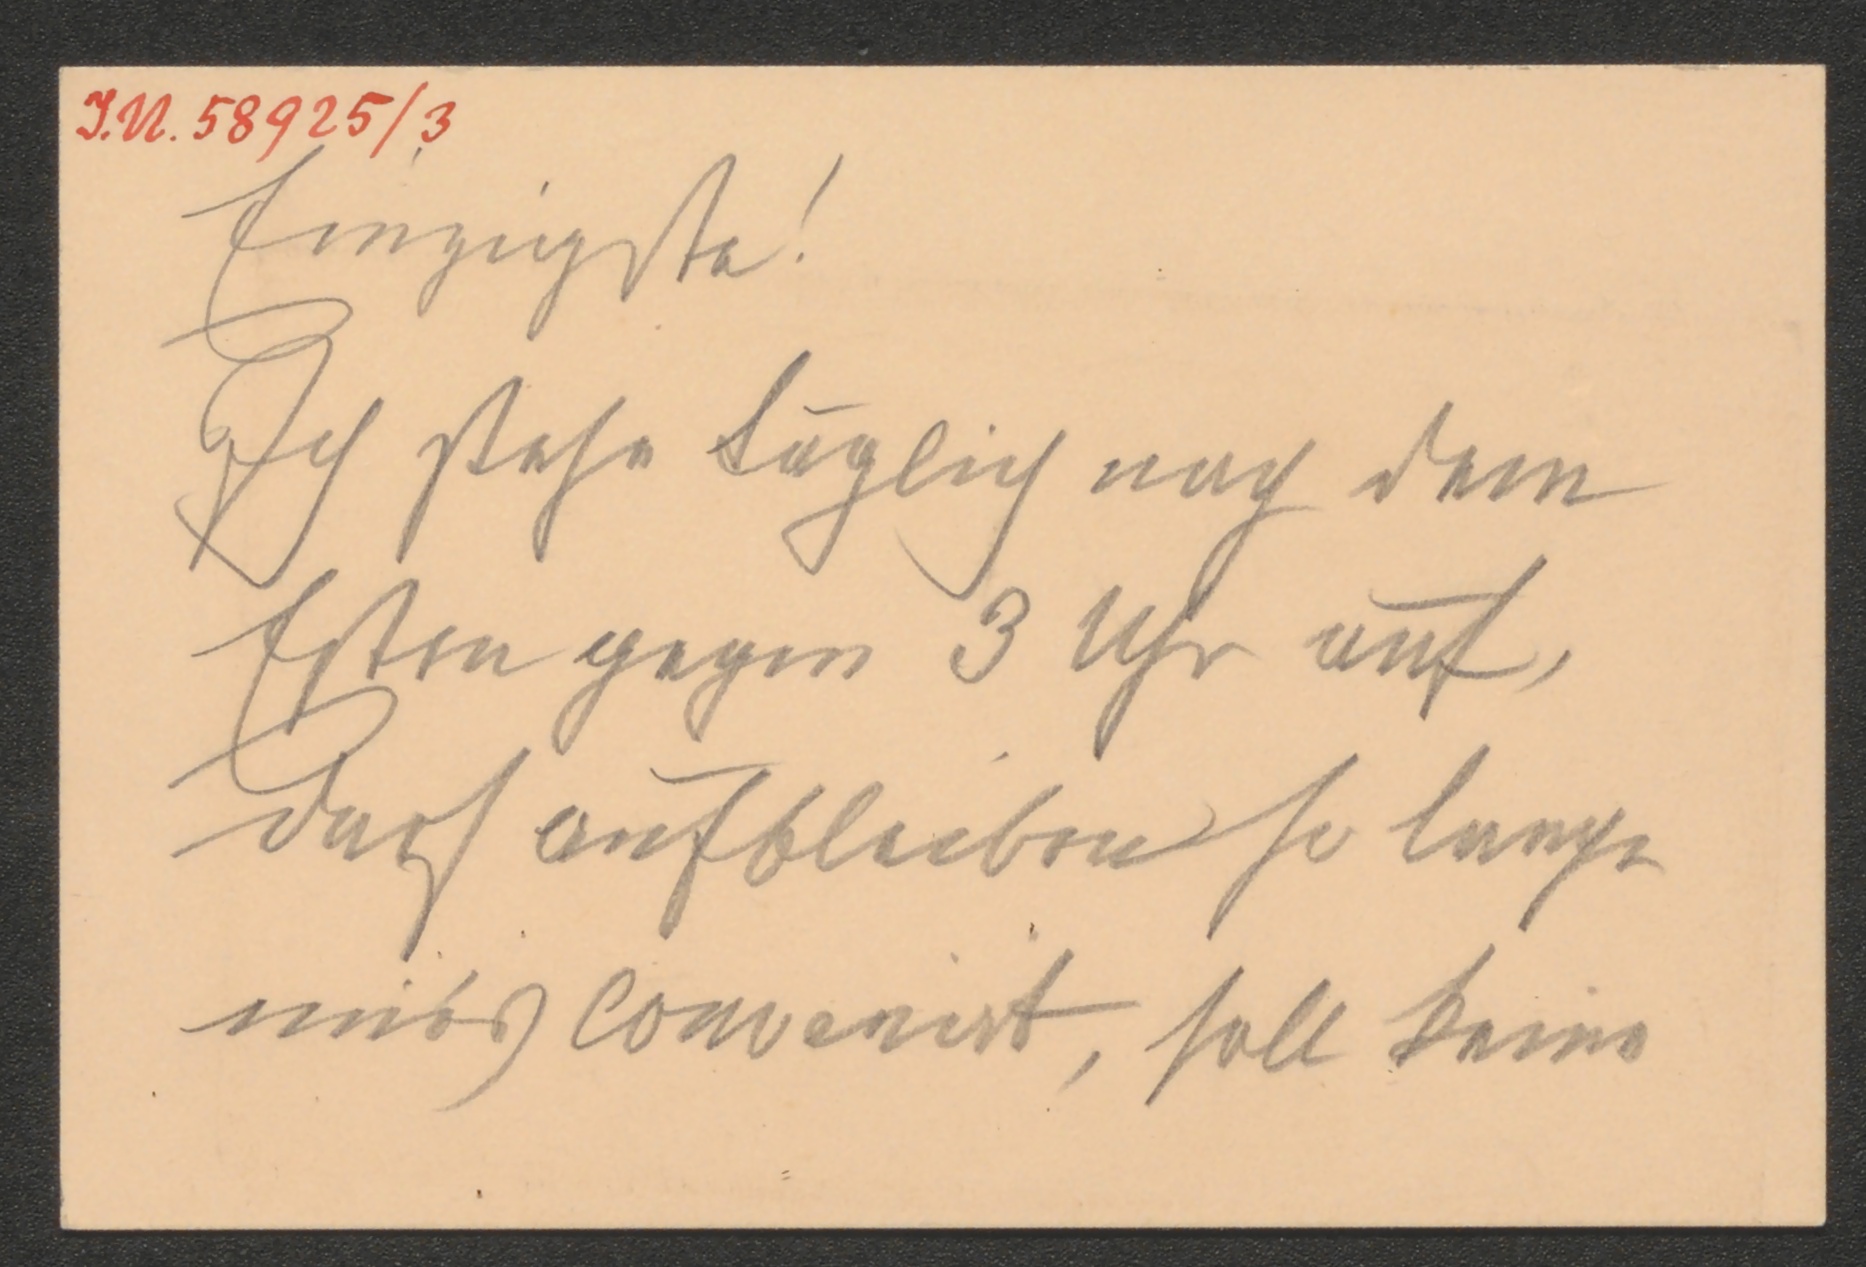 I.N. 58925/3
Einzigste!
Ich stehe täglich nach dem
Essen gegen 3 Uhr auf,
darf aufbleiben so lange
mirs convenirt, soll keine